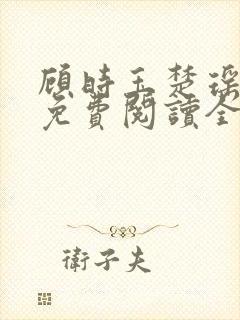 顾時玉楚瑶
免費閱讀全
衛子夫